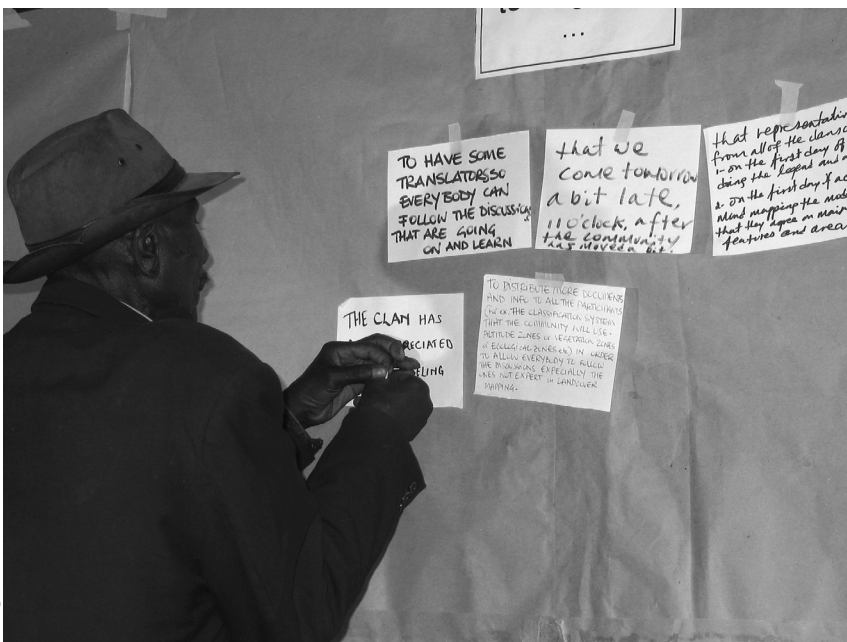 ...
TO HAVE SOME
TRANSLATORS, SO
EVERYBODY CAN
FOLLOW THE DISCUSSIONS
THAT ARE GOING
ON AND LEARN
that we
come tomorrow
a bit late,
11 o'clock, after
the community
has moved a bit.
that representatives
from all of the clans
1- on the first day of
doing the legend and
2- on the first day of
mind mapping the
that they agree on main
features and areas
THE CLAN HAS
TO DISTRIBUTE MORE DOCUMENTS
AND INFO TO ALL THE PARTICIPANTS
THE CLASSIFICATION SYSTEM
THAT THE COMMUNITY WILL USE.
ALTITUDE ZONES or VEGETATION ZONES
or ECOLOGICAL ZONES etc) IN ORDER
TO ALLOW EVERYBODY TO FOLLOW
THE DISCUSSIONS ESPECIALLY THE
ONES NOT EXPERT IN LANDCOVER
MAPPING.